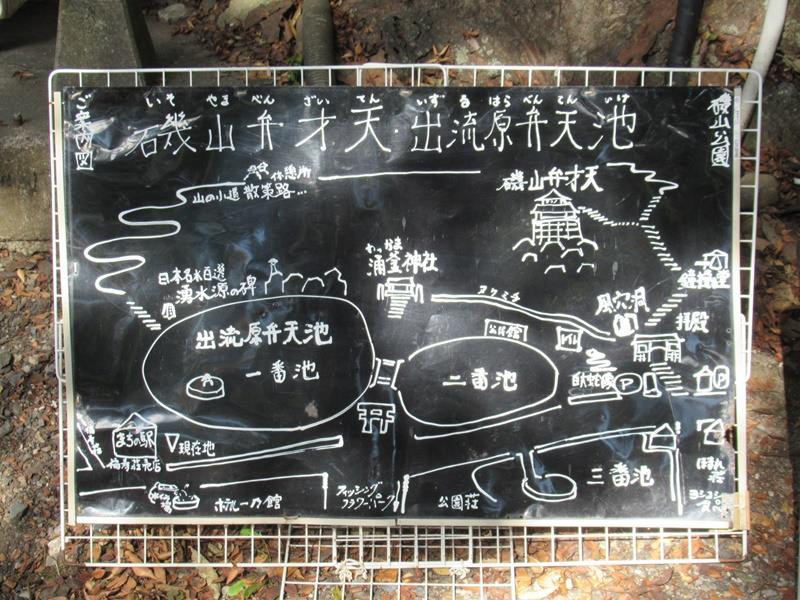 いそ やま べん ざい てん いずる はら べん てん いけ
磯山弁才天・出流原弁天池
ご案内図
磯山公園
休憩所
山の小道 散策路…
磯山弁才天
日本名水百選
湧水源の碑
わっかま
涌釜神社
ヌケミチ
風穴洞
鐘撞堂
拝殿
公民館
トイレ
出流原弁天池
一番池
二番池
白蛇
P
P
まちの駅
▽現在地
三番池
ホテル一乃館
フィッシング
フラワーパーク
公園荘